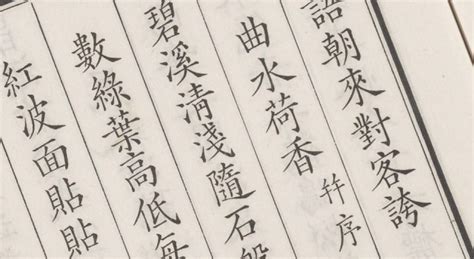 語朝來對客誇
曲水荷香 幷序
碧溪清淺隨石盤
數綠葉高低每
紅波面貼貼